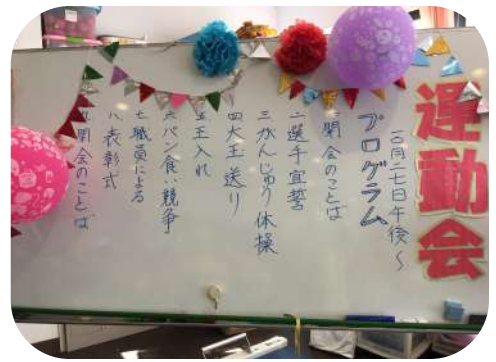 運動会
一〇月二七日午後〜
プログラム
一開会のことば
二選手宣誓
三がんじゅう体操
四大玉送り
五玉入れ
六パン食い競争
七職員による
八表彰式
閉会のことば